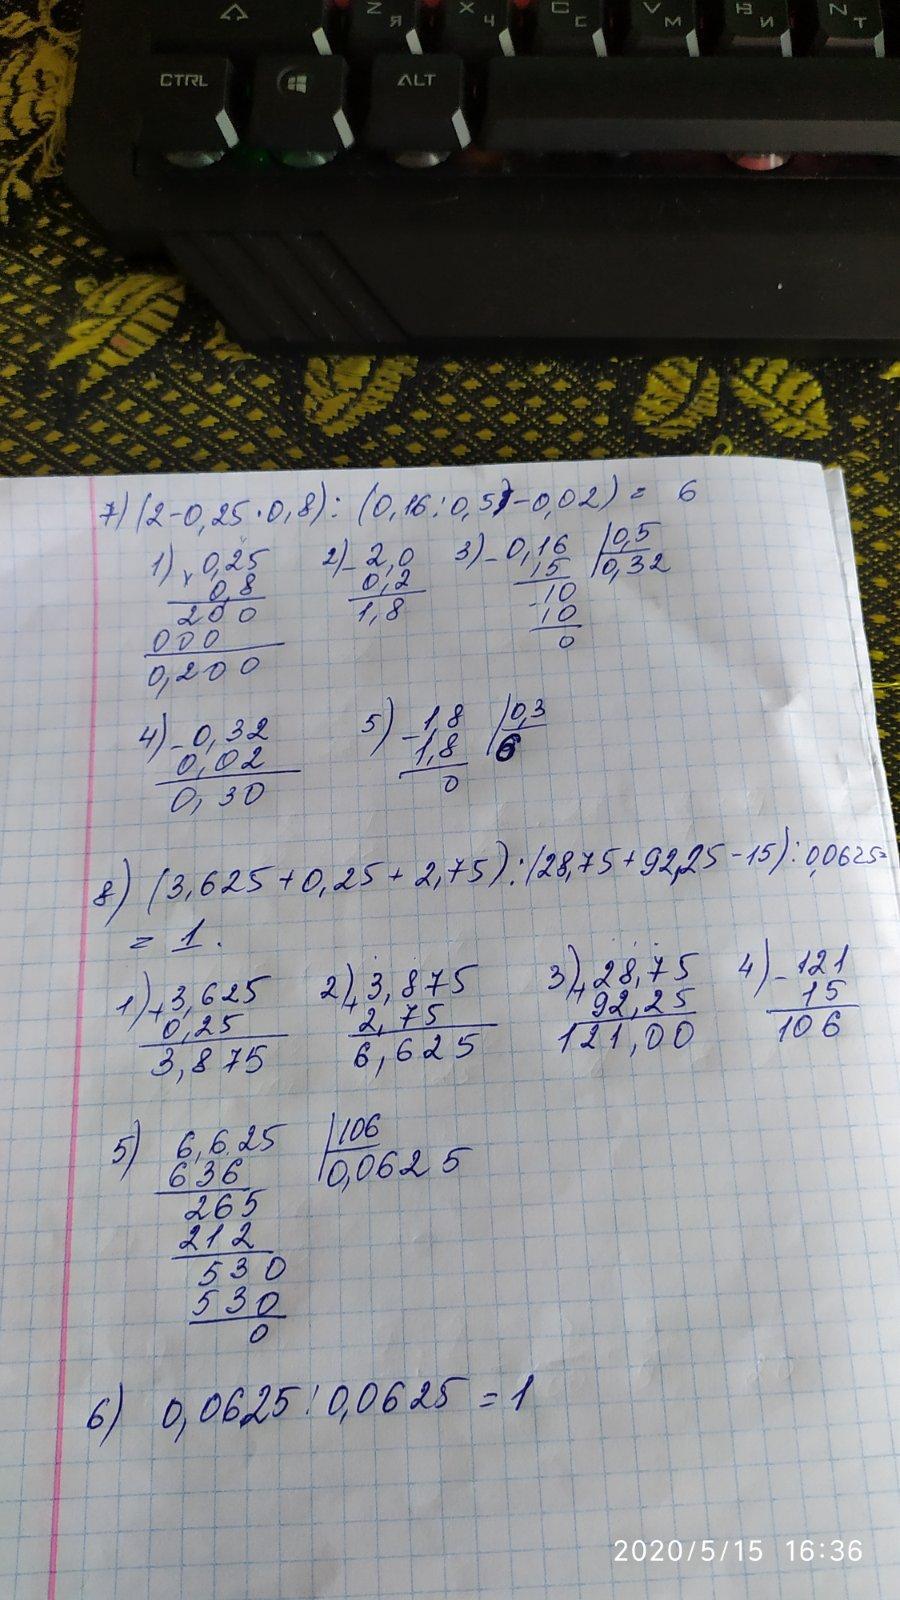 Z Я
X Ч
C С
V М
B И
N Т
CTRL
ALT
7) (2-0,25·0,8) : (0,16:0,5-0,02) = 6
1) × 0,25 2) - 2,0 3) - 0,16 0,5
0,8 0,2 15 0,32
200 1,8 - 10
000 10
0,200 0
4) - 0,32 5) - 1,8 0,3
0,02 1,8 6
0,30 0
8) (3,625+0,25+2,75) : (28,75+92,25-15) : 0,0625=
= 1.
1) + 3,625 2) + 3,875 3) + 28,75 4) - 121
0,25 2,75 92,25 15
3,875 6,625 121,00 106
5) 6,625 106
636 0,0625
265
212
530
530
0
6) 0,0625 : 0,0625 = 1
2020/5/15 16:36